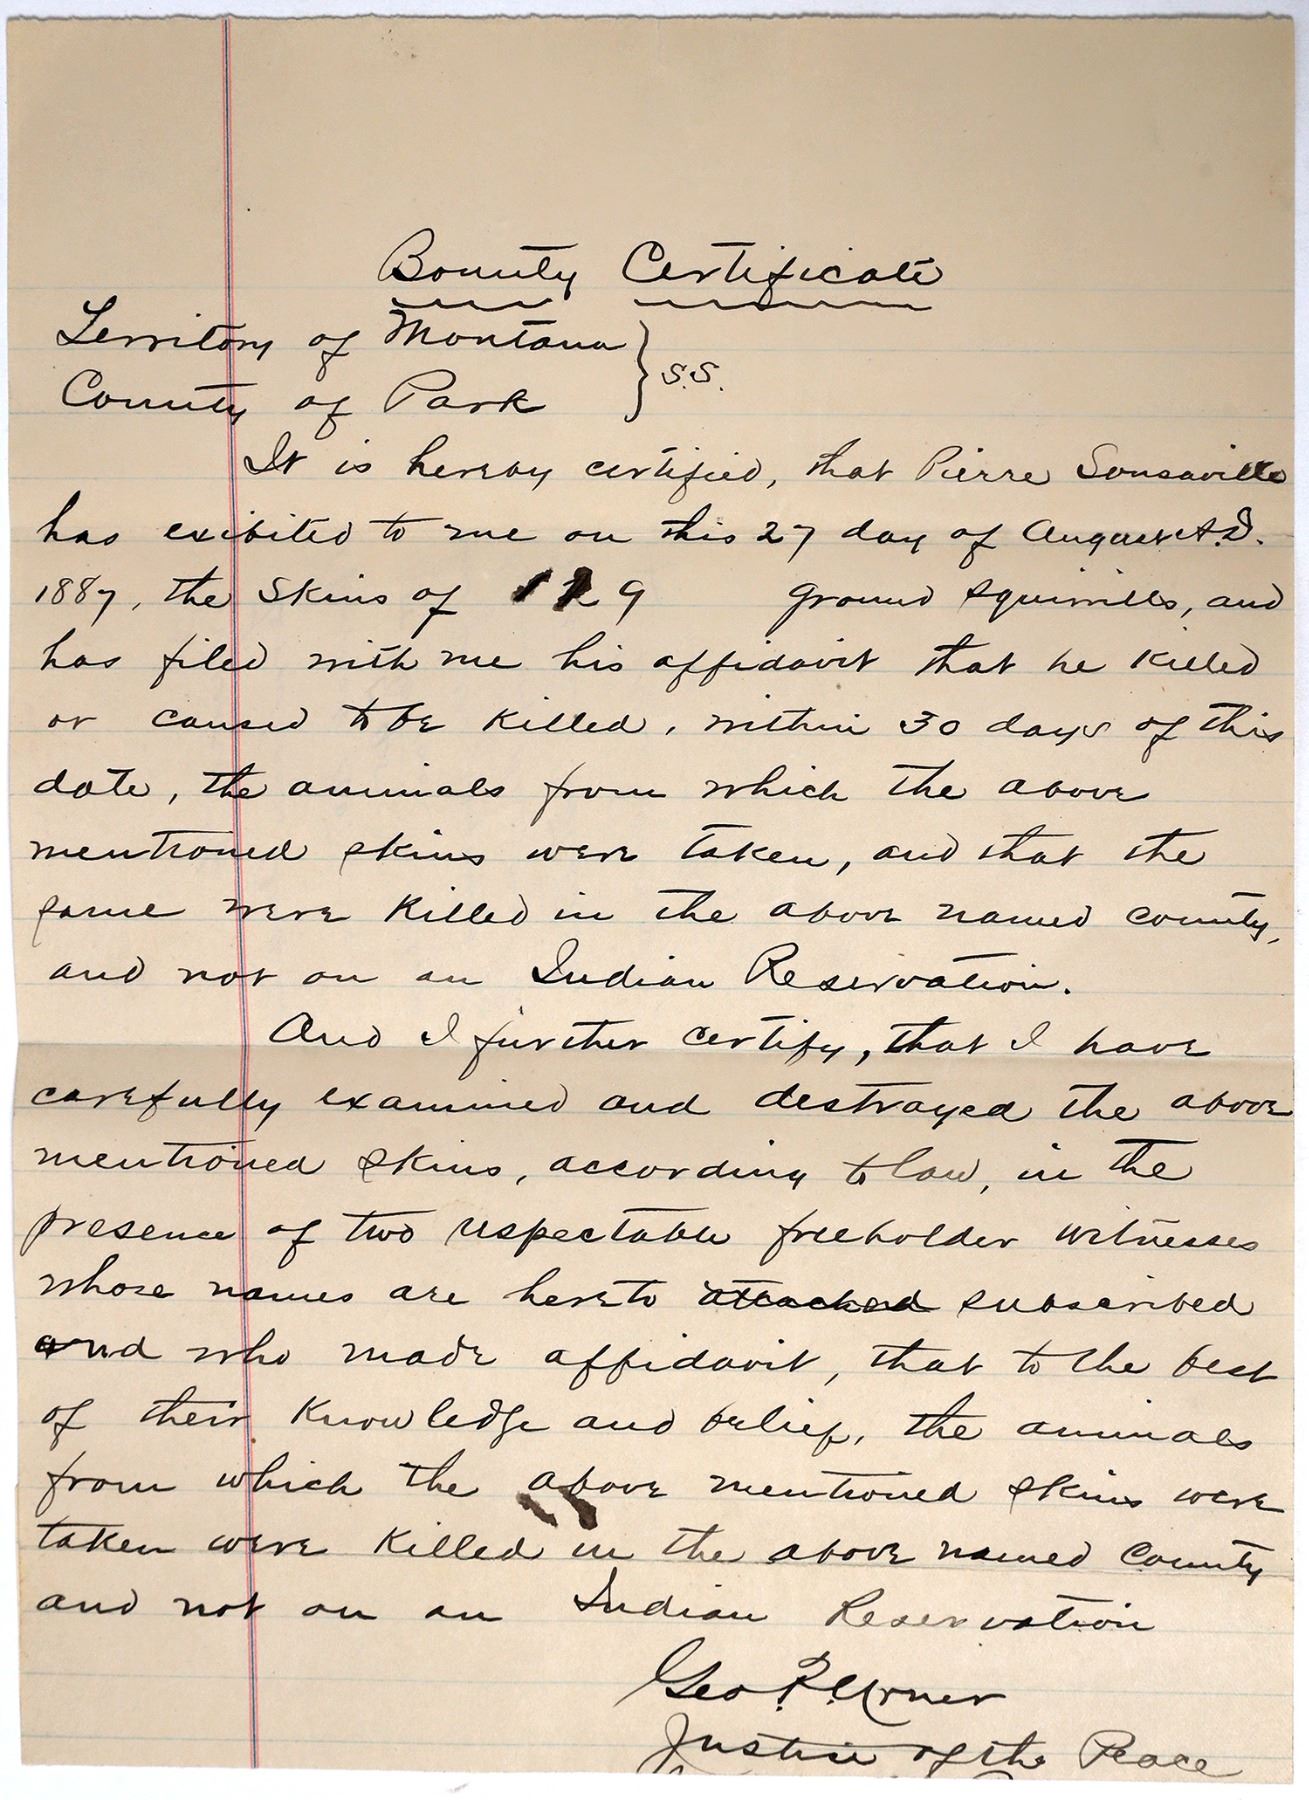 Bounty Certificate
Territory of Montana } S.S.
County of Park
It is hereby certified, that Pierre Sonsaville
has exibited to me on this 27 day of August A.D.
1887, the skins of 129 ground squirrills, and
has filed with me his affidavit that he killed
or caused to be killed, within 30 days of this
date, the animals from which the above
mentioned skins were taken, and that the
same were killed in the above named county,
and not on an Indian Reservation.
And I further certify, that I have
carefully examined and destroyed the above
mentioned skins, according to law, in the
presence of two respectable freeholder witnesses
whose names are hereto attached subscribed
and who made affidavit, that to the best
of their knowledge and belief, the animals
from which the above mentioned skins were
taken were killed in the above named county
and not on an Indian Reservation
Geo. P. Urner
Justice of the Peace